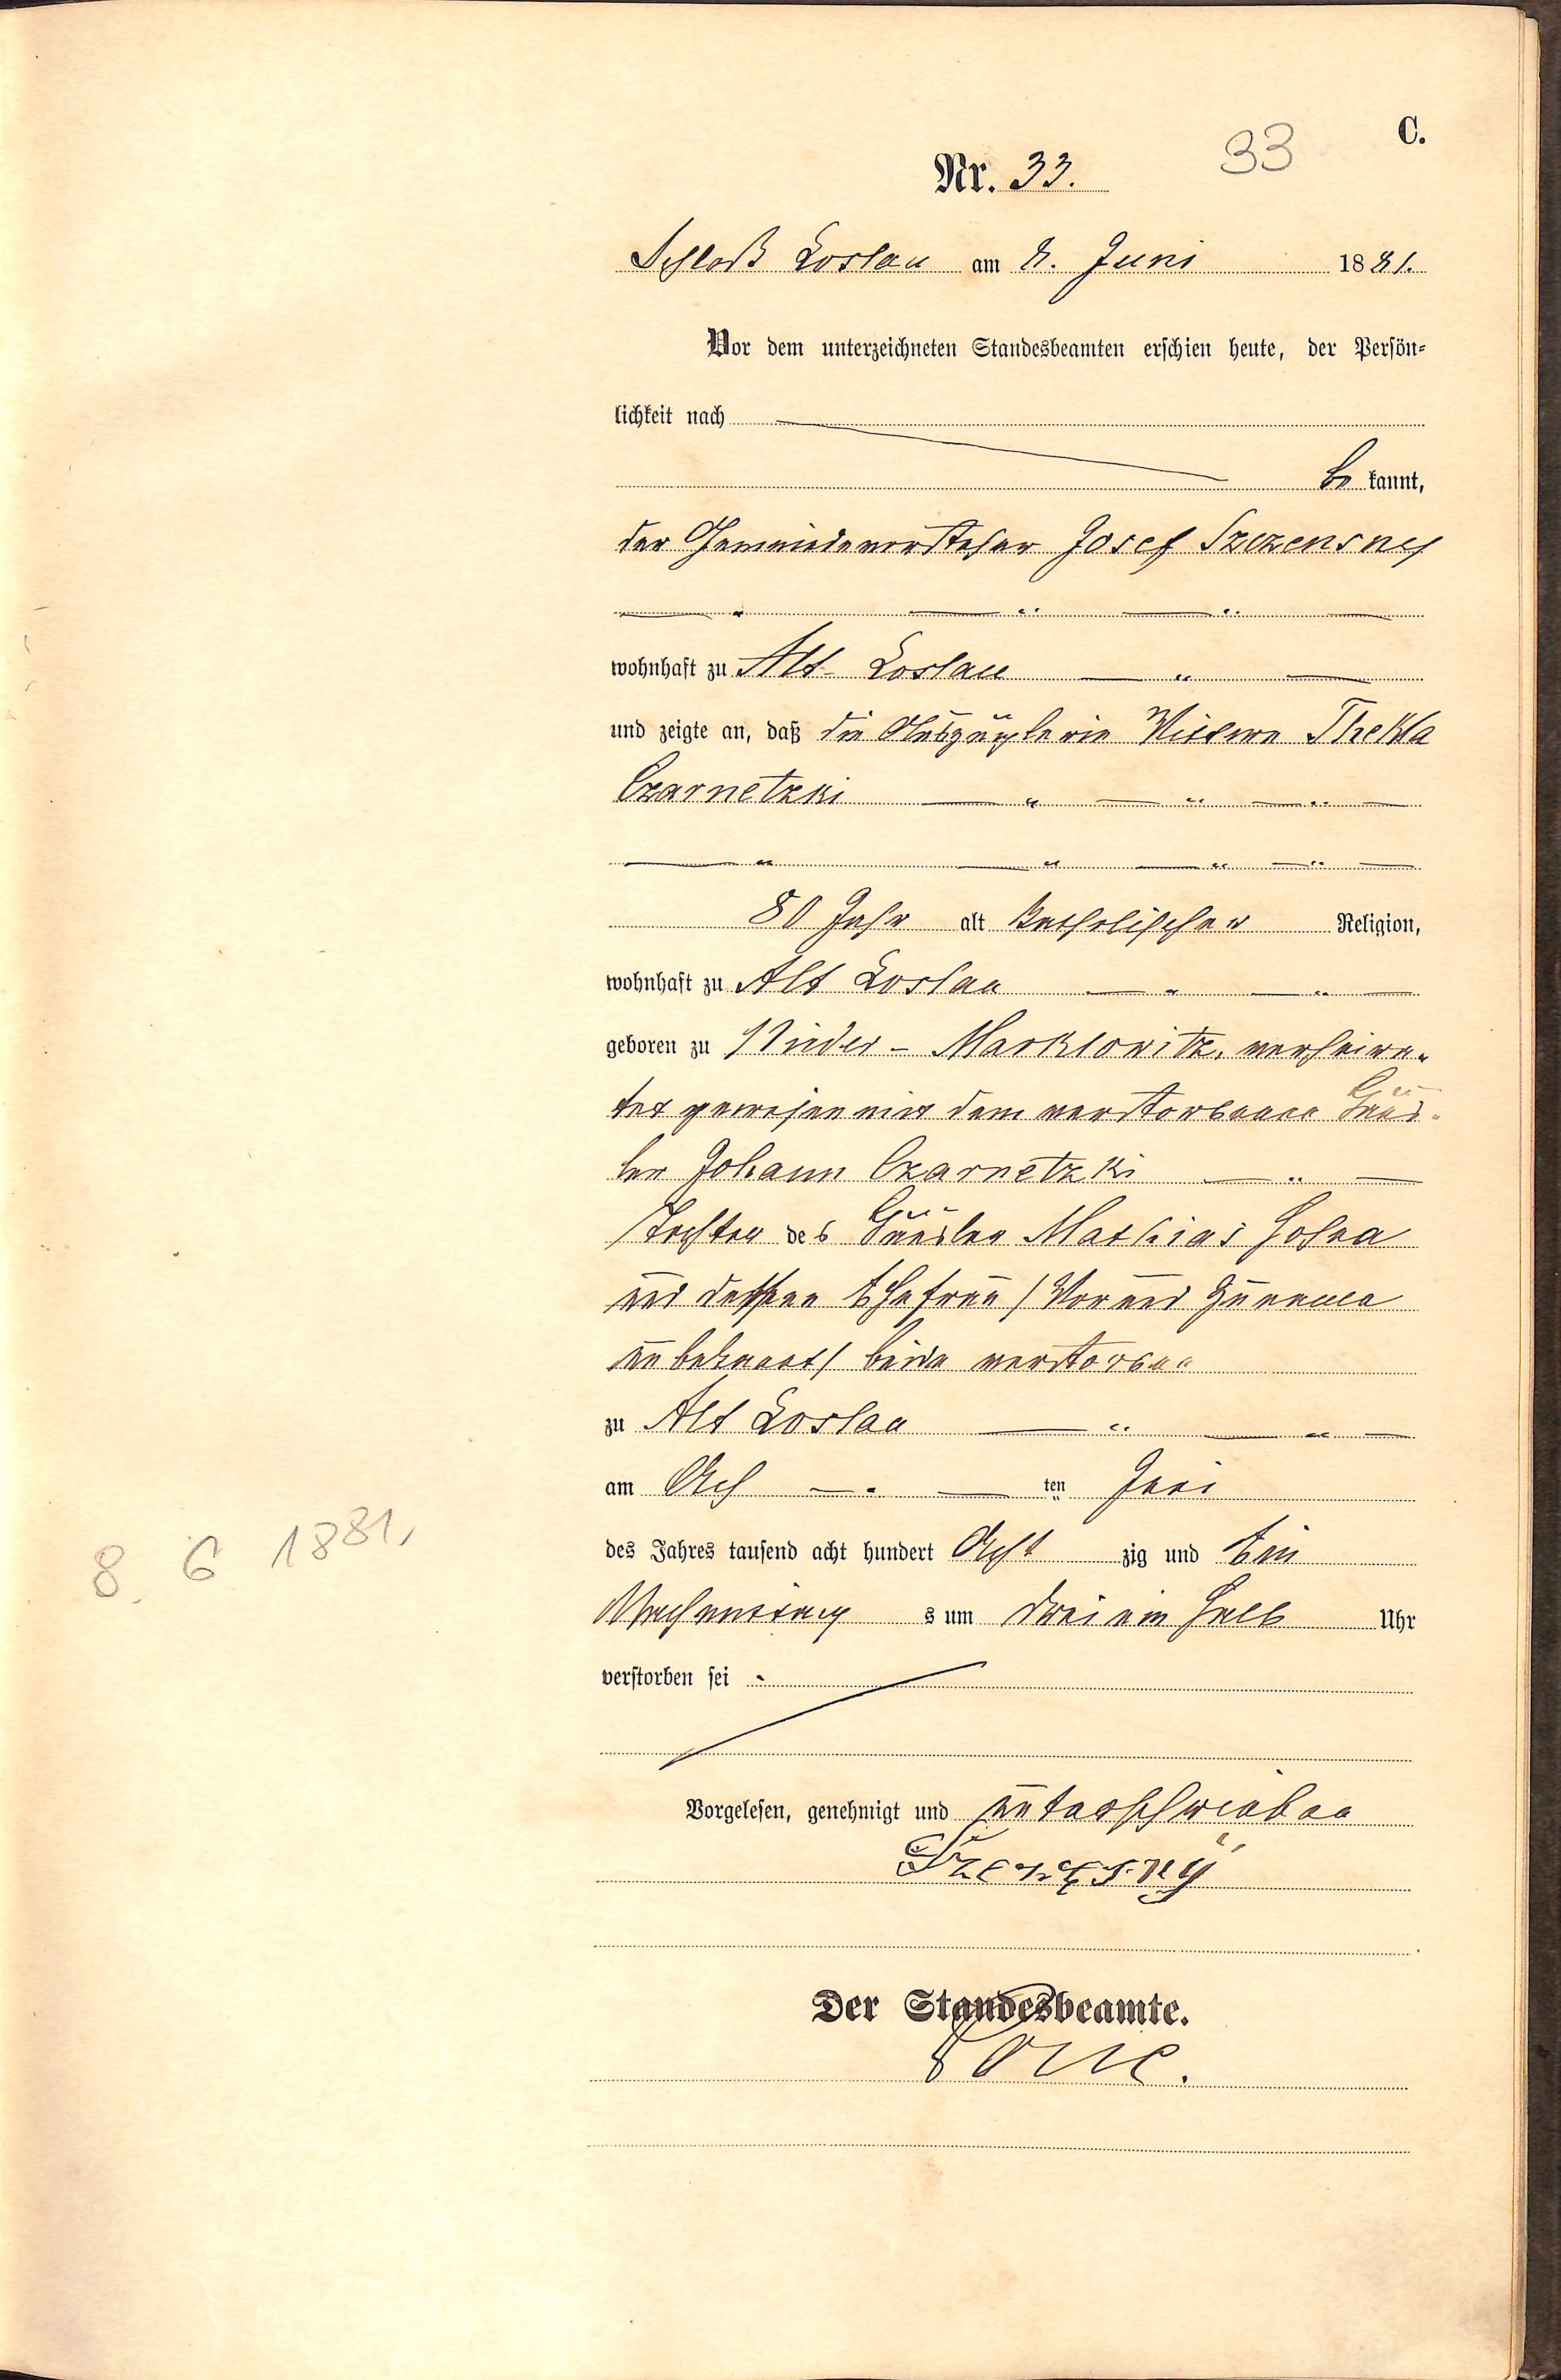 C.
Nr. 33. 33
Schloß Loslau am 8. Juni 1881.
Vor dem unterzeichneten Standesbeamten erschien heute, der Persön-
lichkeit nach
be kannt,
der Gemeindevorsteher Josef Szczensny
wohnhaft zu Alt-Loslau
und zeigte an, daß die Auszüglerin Wittwe Thekla
Czarnetzki
80 Jahr alt katholischer Religion,
wohnhaft zu Alt Loslau
geboren zu Nieder-Marklowitz, verheira-
tet gewesen mit dem verstorbenen Häus-
ler Johann Czarnetzki
Tochter des Häusler Mathias
und dessen Ehefrau /Vor und Zuname
unbekannt/ beide verstorben
zu Alt Loslau
am Ach ten Juni
des Jahres tausend acht hundert Acht zig und Ein
Nachmittag s um drei ein halb Uhr
verstorben sei
8. 6 1881.
Vorgelesen, genehmigt und unterschrieben
Der Standesbeamte.